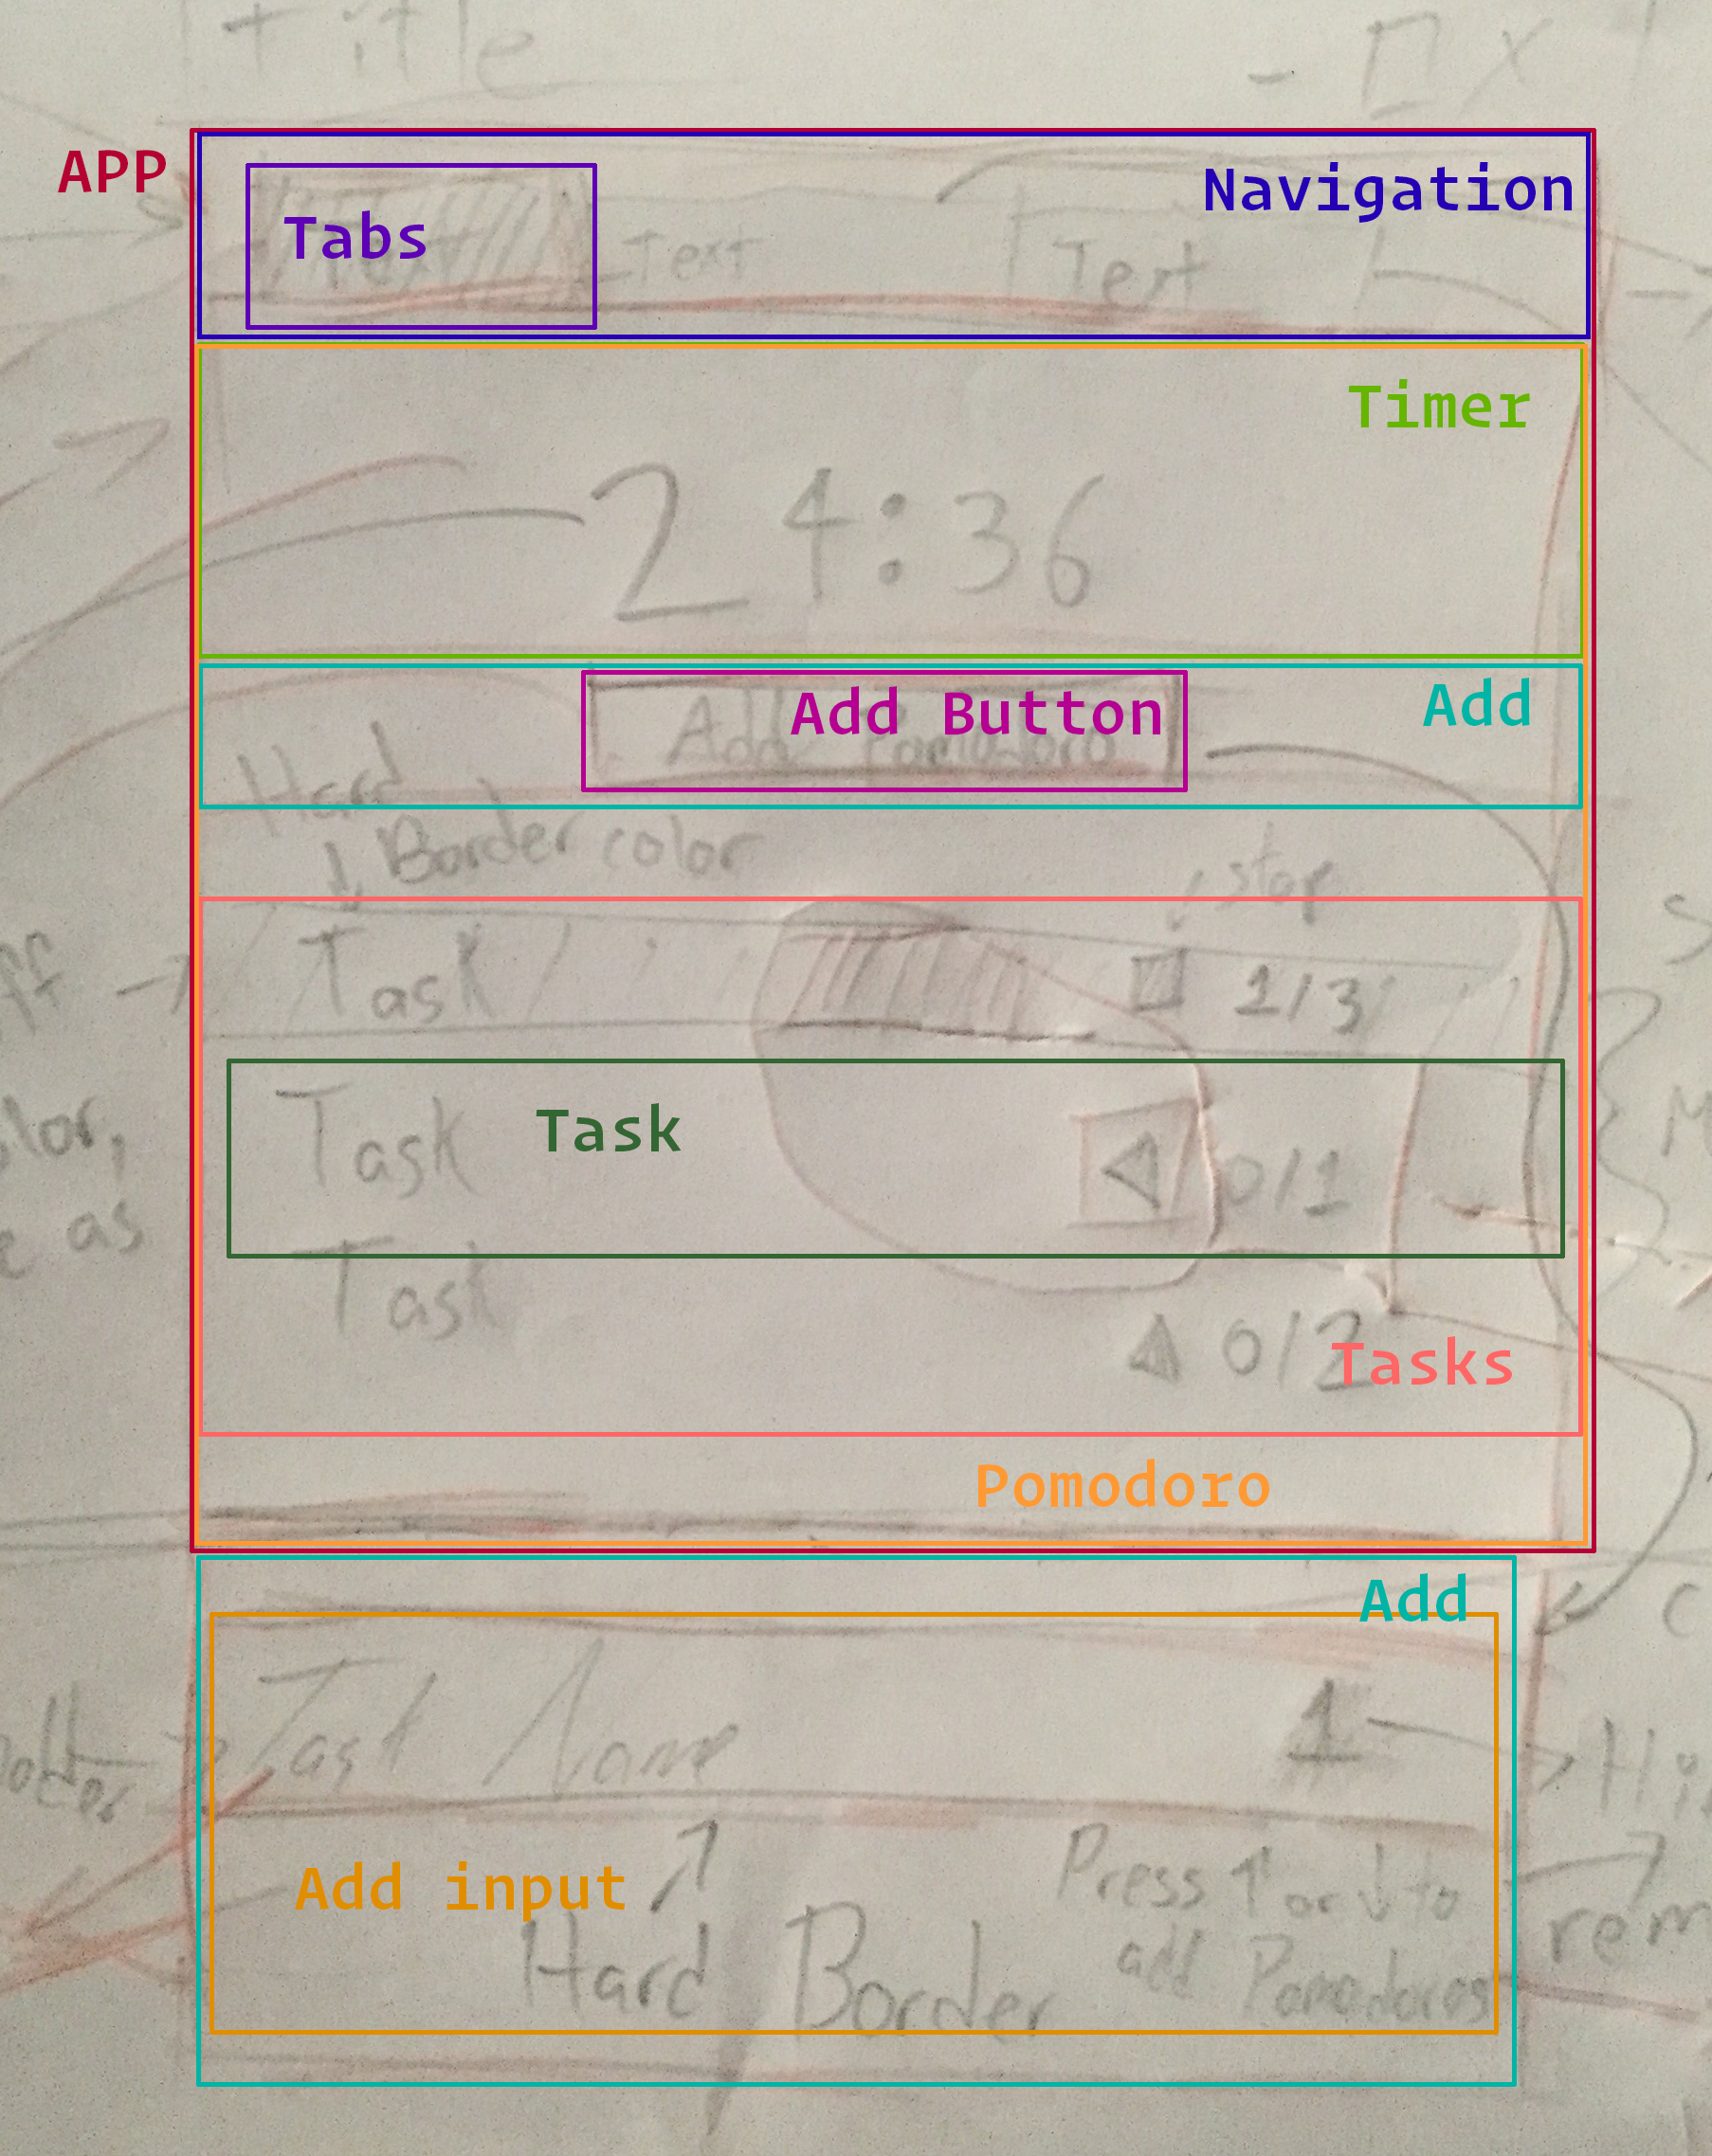 Title - □ X
APP
Navigation
Tabs
Text Text
Timer
24:36
Add Button
Add
Add Pomodoro
Hard
Border color
stop
Task 1/3
Task
Task 0/1
Task
0/2
Tasks
Pomodoro
Add
Task Name 1
Add input
Press ↑ or ↓ to
add Pomodoros
Hard Border